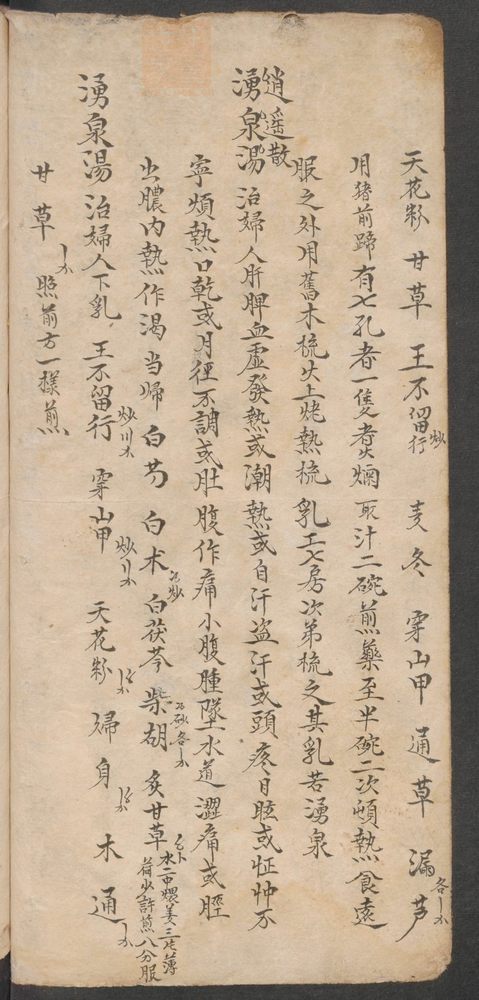 天花粉 甘草 王不留行炒 麦冬 穿山甲 通草 漏芦各一戔
用猪前蹄有七孔者一隻煑火爛取汁二碗煎藥至半碗二次頓熱食遠
服之外用舊木梳火上烤熱梳乳上七房次弟梳之其乳若湧泉
逍遥散
湧泉湯 治婦人肝脾血虛發熱或潮熱或自汗盗汗或頭疼目眩或怔忡不
寧煩熱口乾或月徑不調或肚腹作痛小腹腫墜水道澀痛或脛
出膿内熱作渴 当帰 白芍 白术 白茯苓 柴胡 炙甘草 水二中煨姜三片薄
荷少許煎八分服
湧泉湯 治婦人下乳 王不留行炒 穿山甲炒 天花粉 歸身 木通
甘草 照前方一様煎